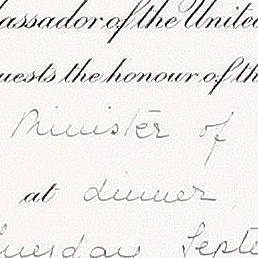 bassador of the United
uests the honour of th
Minister of
at dinner
Septe